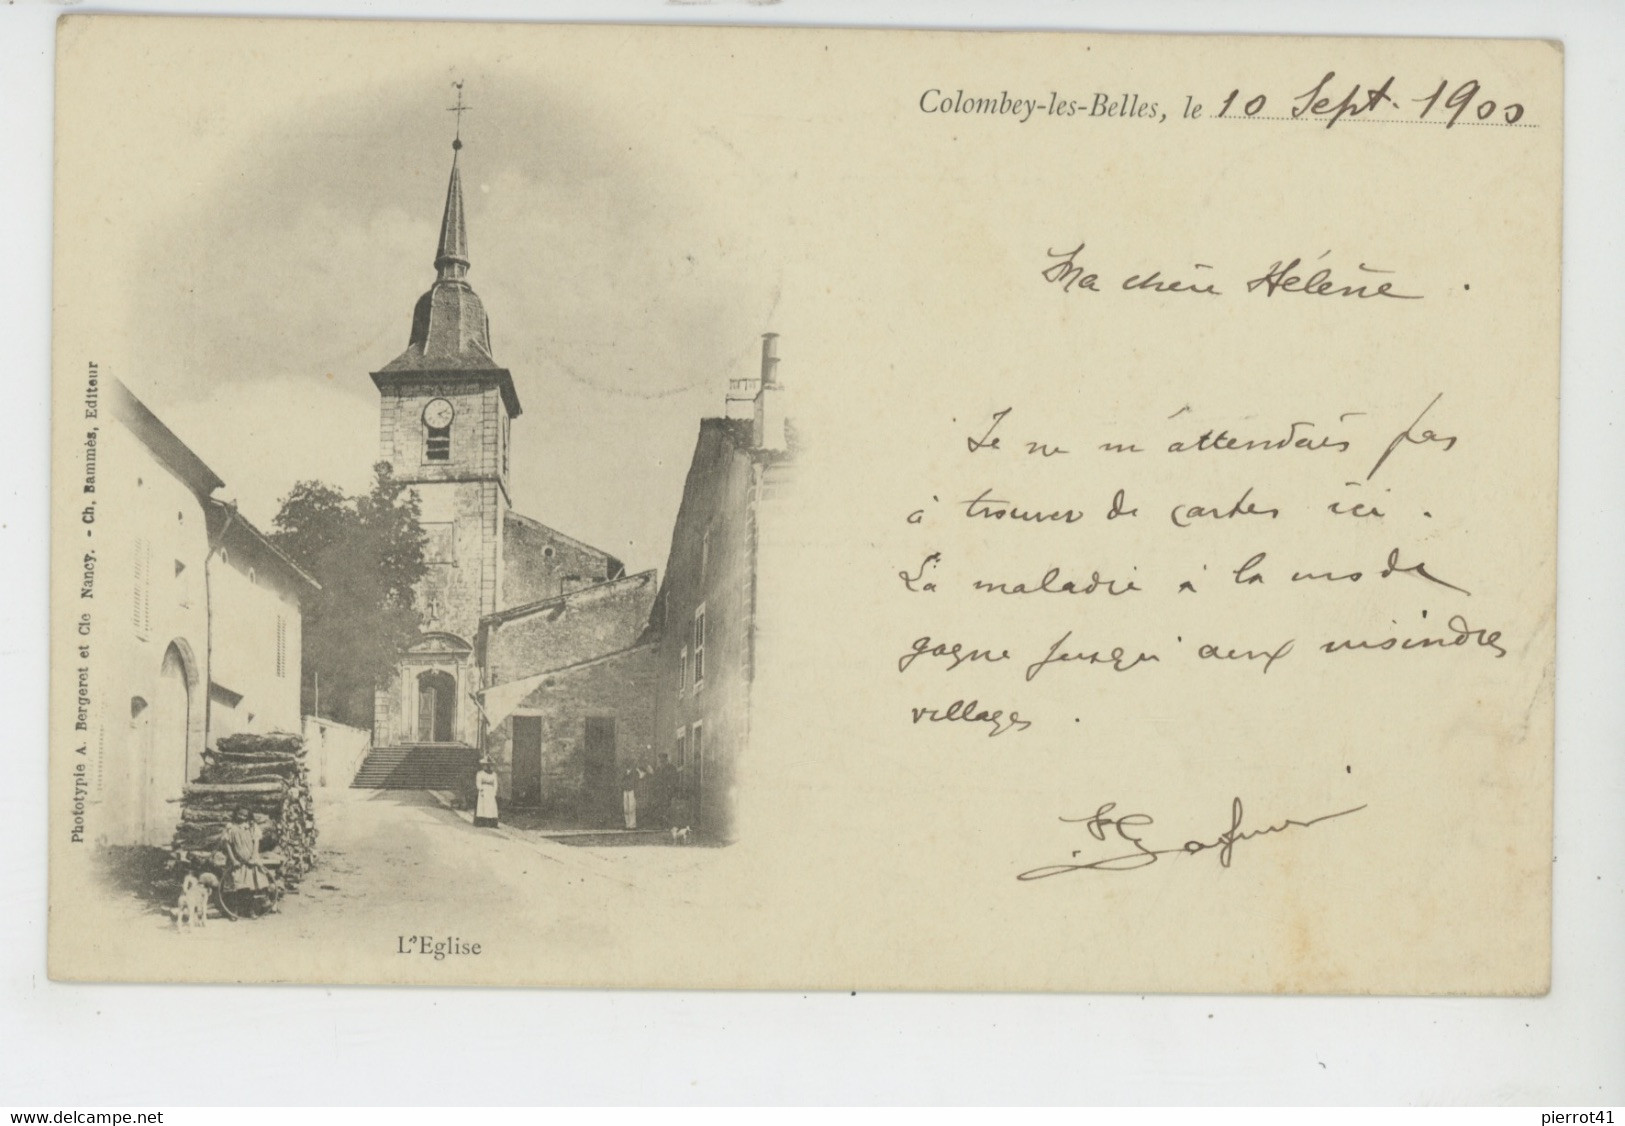 Colombey-les-Belles, le 10 Sept. 1900
Ma chère Hélène.
Je ne m'attendais pas
à trouver de cartes ici.
La maladie à la mode
gagne jusqu'aux moindres
villages.
Phototypie A. Bergeret et Cie Nancy. - Ch. Bammès, Editeur
L'Eglise
www.delcampe.net
pierrot41